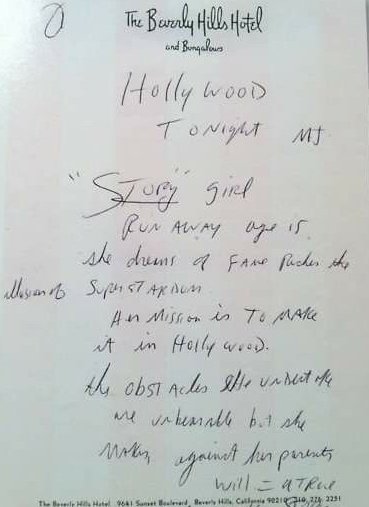 The Beverly Hills Hotel
and Bungalows
Hollywood
Tonight MJ
"Story" girl
Run away age 15.
she dreams of Fame the
illusion of Superstardom.
Her Mission is To Make
it in Hollywood.
the obstacles she undertake
are unbearable but she
Makes against her parents
will = a True
The Beverly Hills Hotel 9641 Sunset Boulevard, Beverly Hills, California 90210 310 276 2251